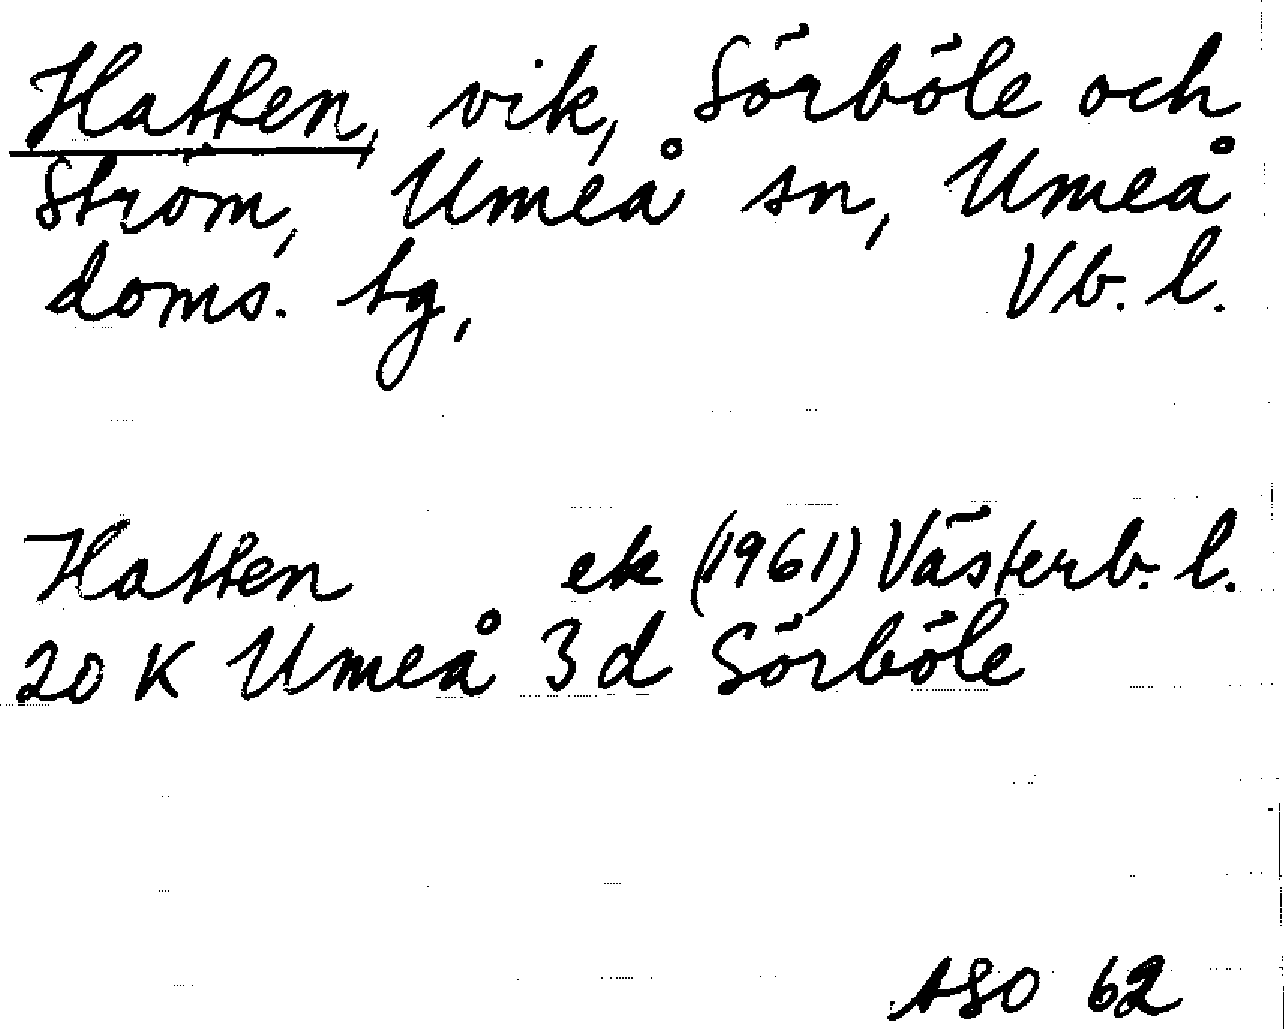 Hatten, vik, Sörböle och
Ström, Umeå sn, Umeå
doms. tg, Vb. l.
Hatten ek (1961) Västerb. l.
20 K Umeå 3 d Sörböle
ASO 62